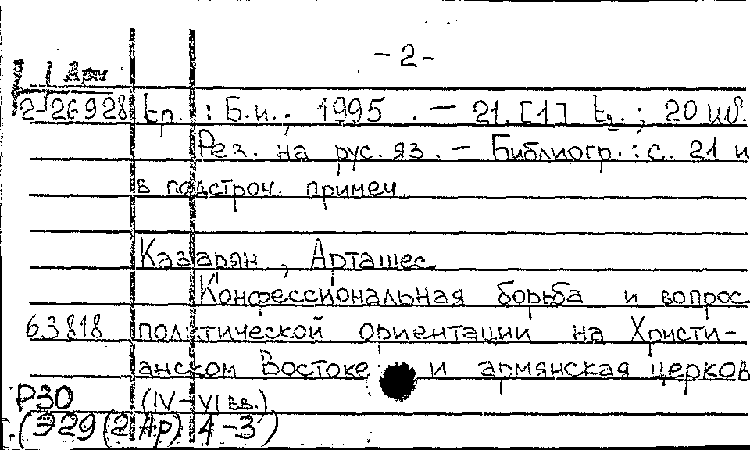 - 2 -
1 Арм
2-26928 Եր. : Б.и., 1995. — 21, [1] էջ ; 20 սմ.
Рез. на рус. яз. — Библиогр.: с. 21 и
в подстроч. примеч.
Казарян, Арташес
Конфессиональная борьба и вопрос
63818 политической ориентации на Христи-
анском Востоке и армянская церков
Р30 (IV-VI вв.)
(Э29(2Ар)4-3)